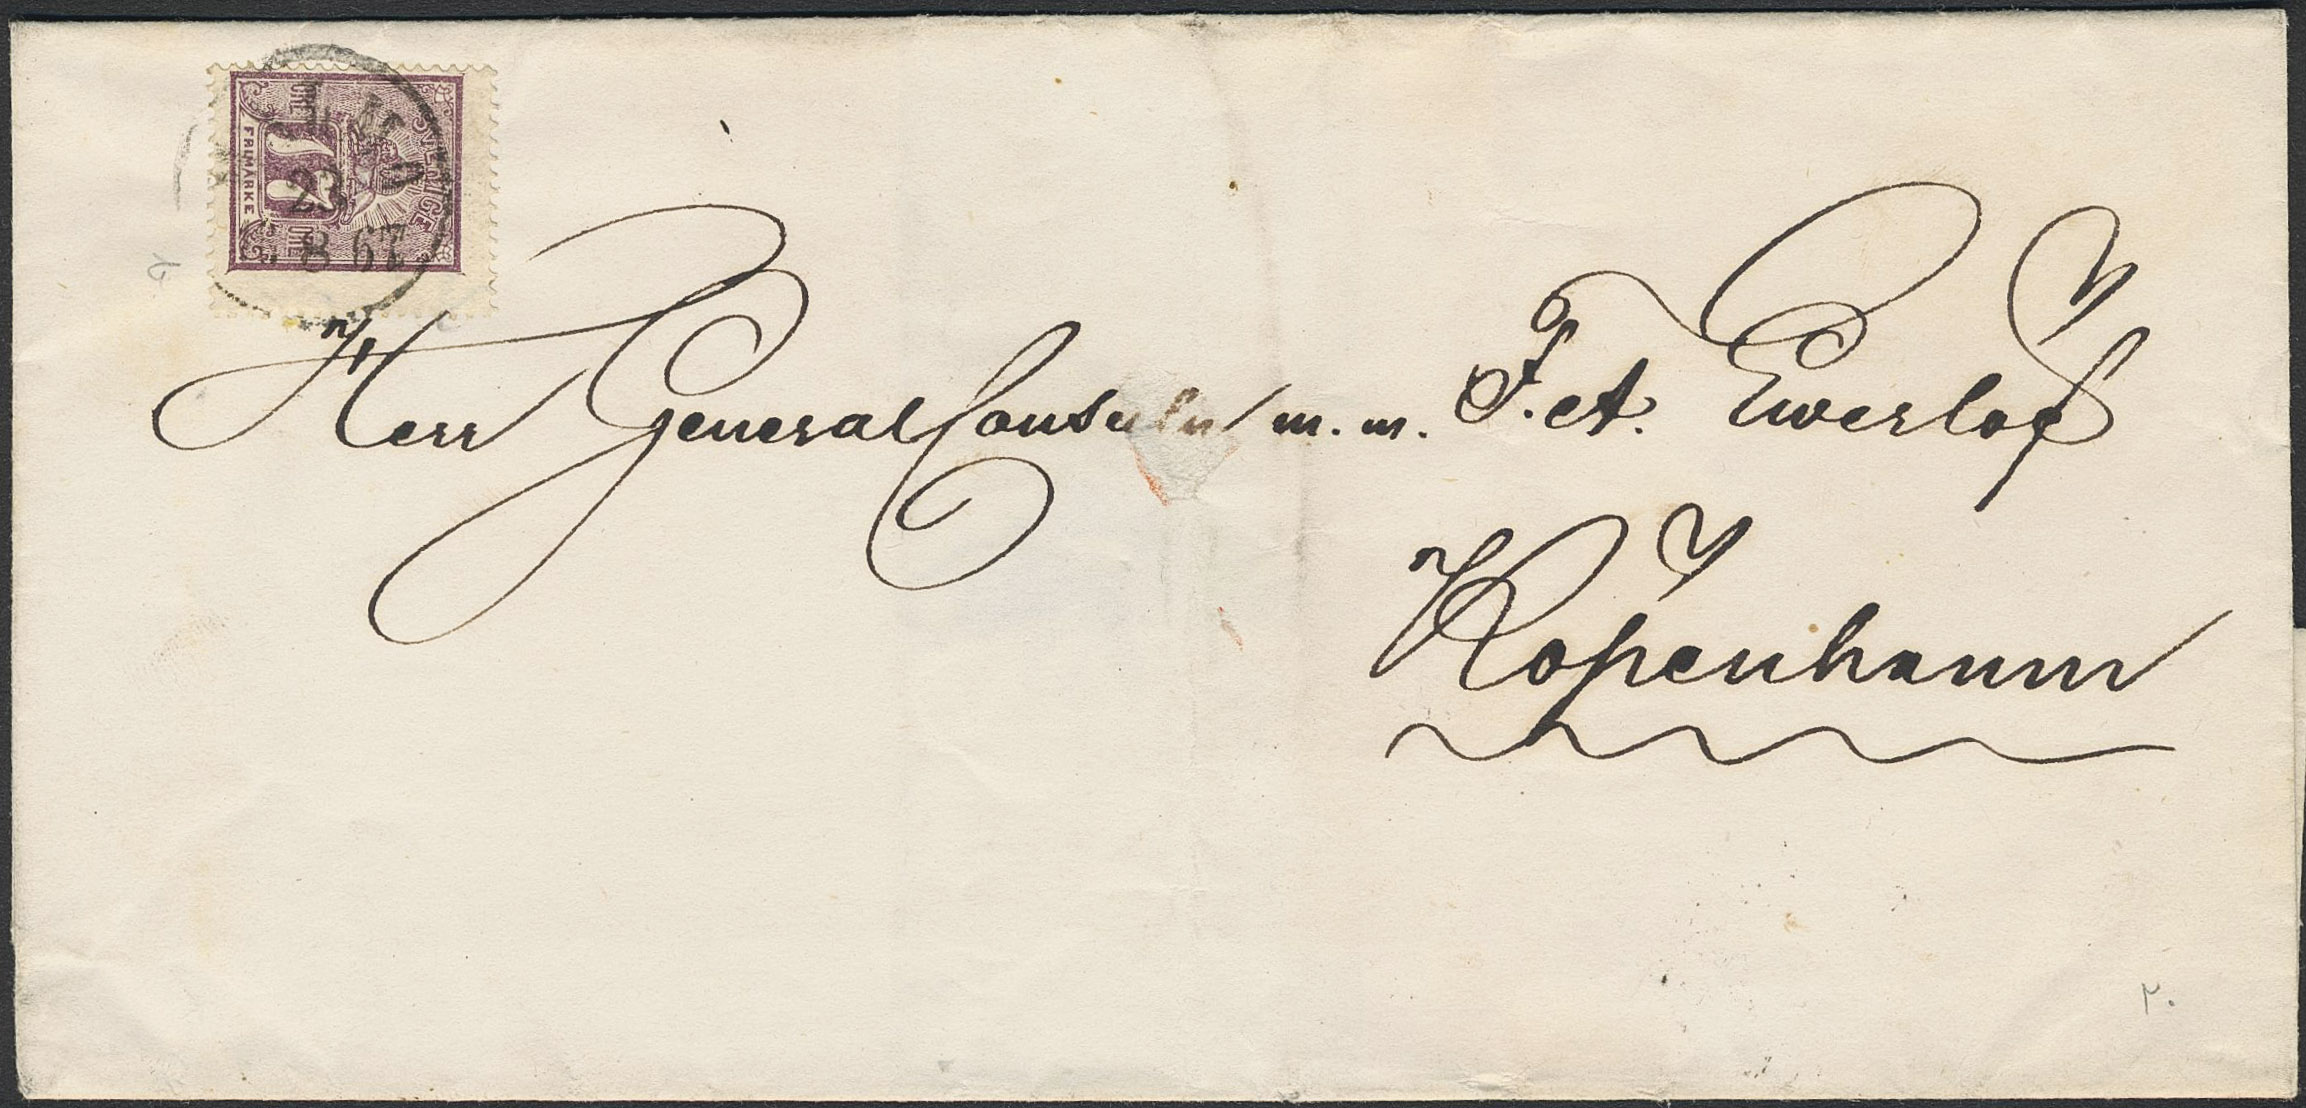 SVERIGE
17
ÖRE ÖRE
FRIMÄRKE
23
8 67
Herr GeneralConsuln m. m. F. et A. Ewerlöf
Köpenhamn